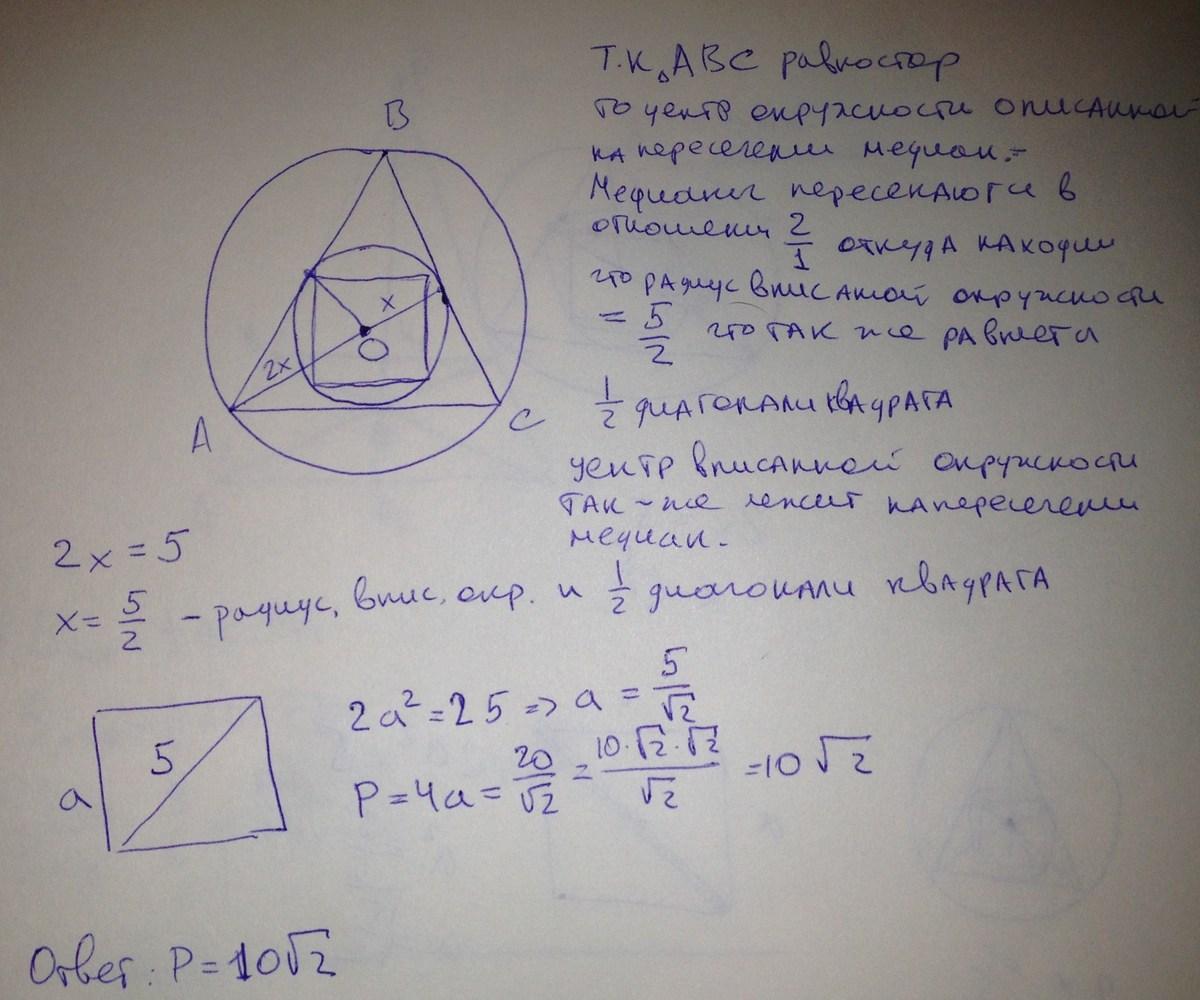 B
x
O
2x
A
C
Т.к △ABC равностор
то центр окружности описанной
на пересечении медиан.
Медианы пересекаются в
отношении 2/1 откуда находим
что радиус вписаной окружности
= 5/2 что так же равняется
1/2 диагонали квадрата
центр вписанной окружности
так-же лежит на пересечении
медиан.
2x = 5
x = 5/2 - радиус, впис. окр. и 1/2 диагонали квадрата
a
5
2a² = 25 => a = 5/√2
P = 4a = 20/√2 = 10·√2·√2/√2 = 10√2
Ответ: P = 10√2